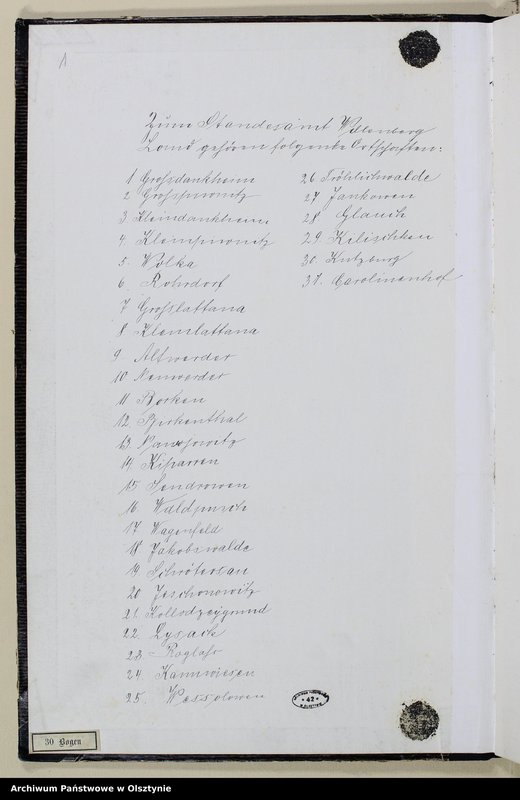 1
Zum Standesamt Willenberg
Land gehören folgende Ortschaften:
1 Großdankheim
2 Großpiwnitz
3 Kleindankheim
4. Kleinpiwnitz
5. Wolka
6. Rohrdorf
7 Großlattana
8 Kleinlattana
9 Altwerder
10 Neuwerder
11 Borken
12. Birkenthal
13
14 Kiparren
15 Sendrowen
16. Waldpusch
17 Wagenfeld
18 Jakobswalde
19 Schröterau
20 Jeschonowitz
21. Kollodzeygrund
22. Lysack
23 Roglaß
24. Kannwiesen
25. Wessolowen
26 Fröhlichwalde
27 Jankowen
28 Glauch
29 Kelischken
30 Kutzburg
31. Carolinenhof
42
30 Bogen
Archiwum Państwowe w Olsztynie